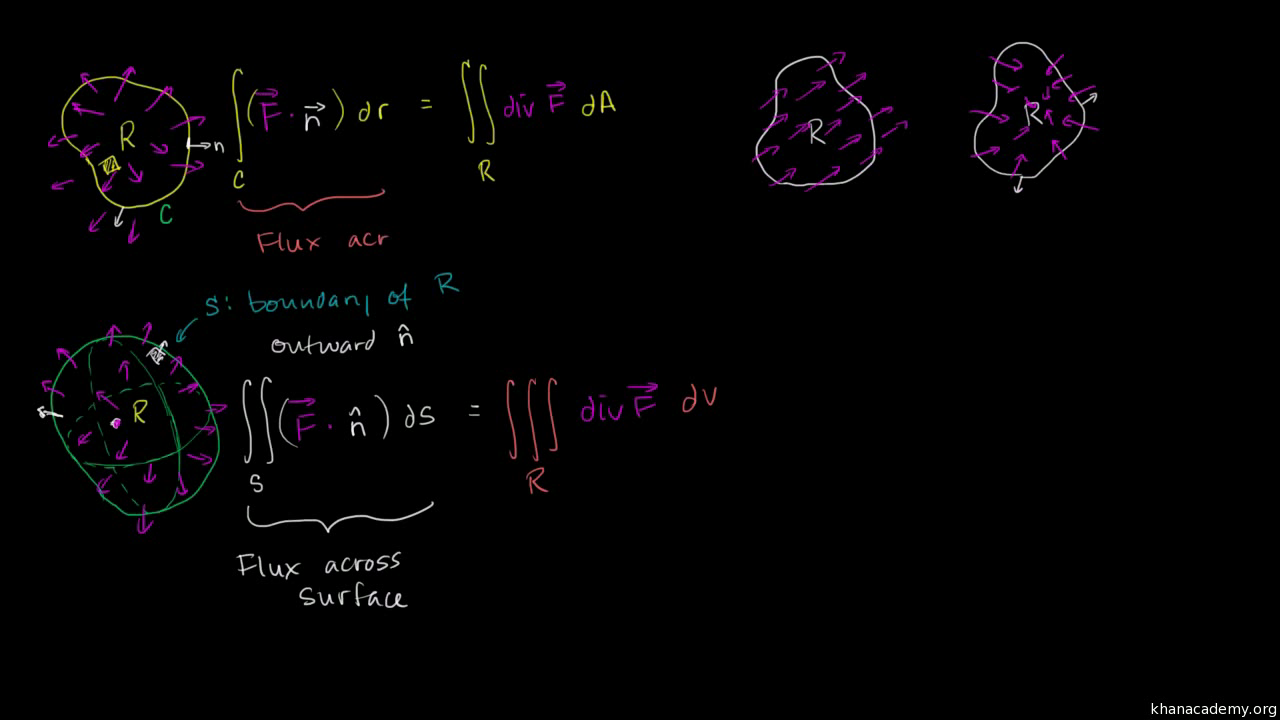 R
n
C
∫ (F⃗ · n⃗) dr = ∬ div F⃗ dA
C
R
Flux acr
R
R
S: boundary of R
outward n̂
R
∬ (F⃗ · n̂) dS = ∭ div F⃗ dV
S
R
Flux across
surface
khanacademy.org